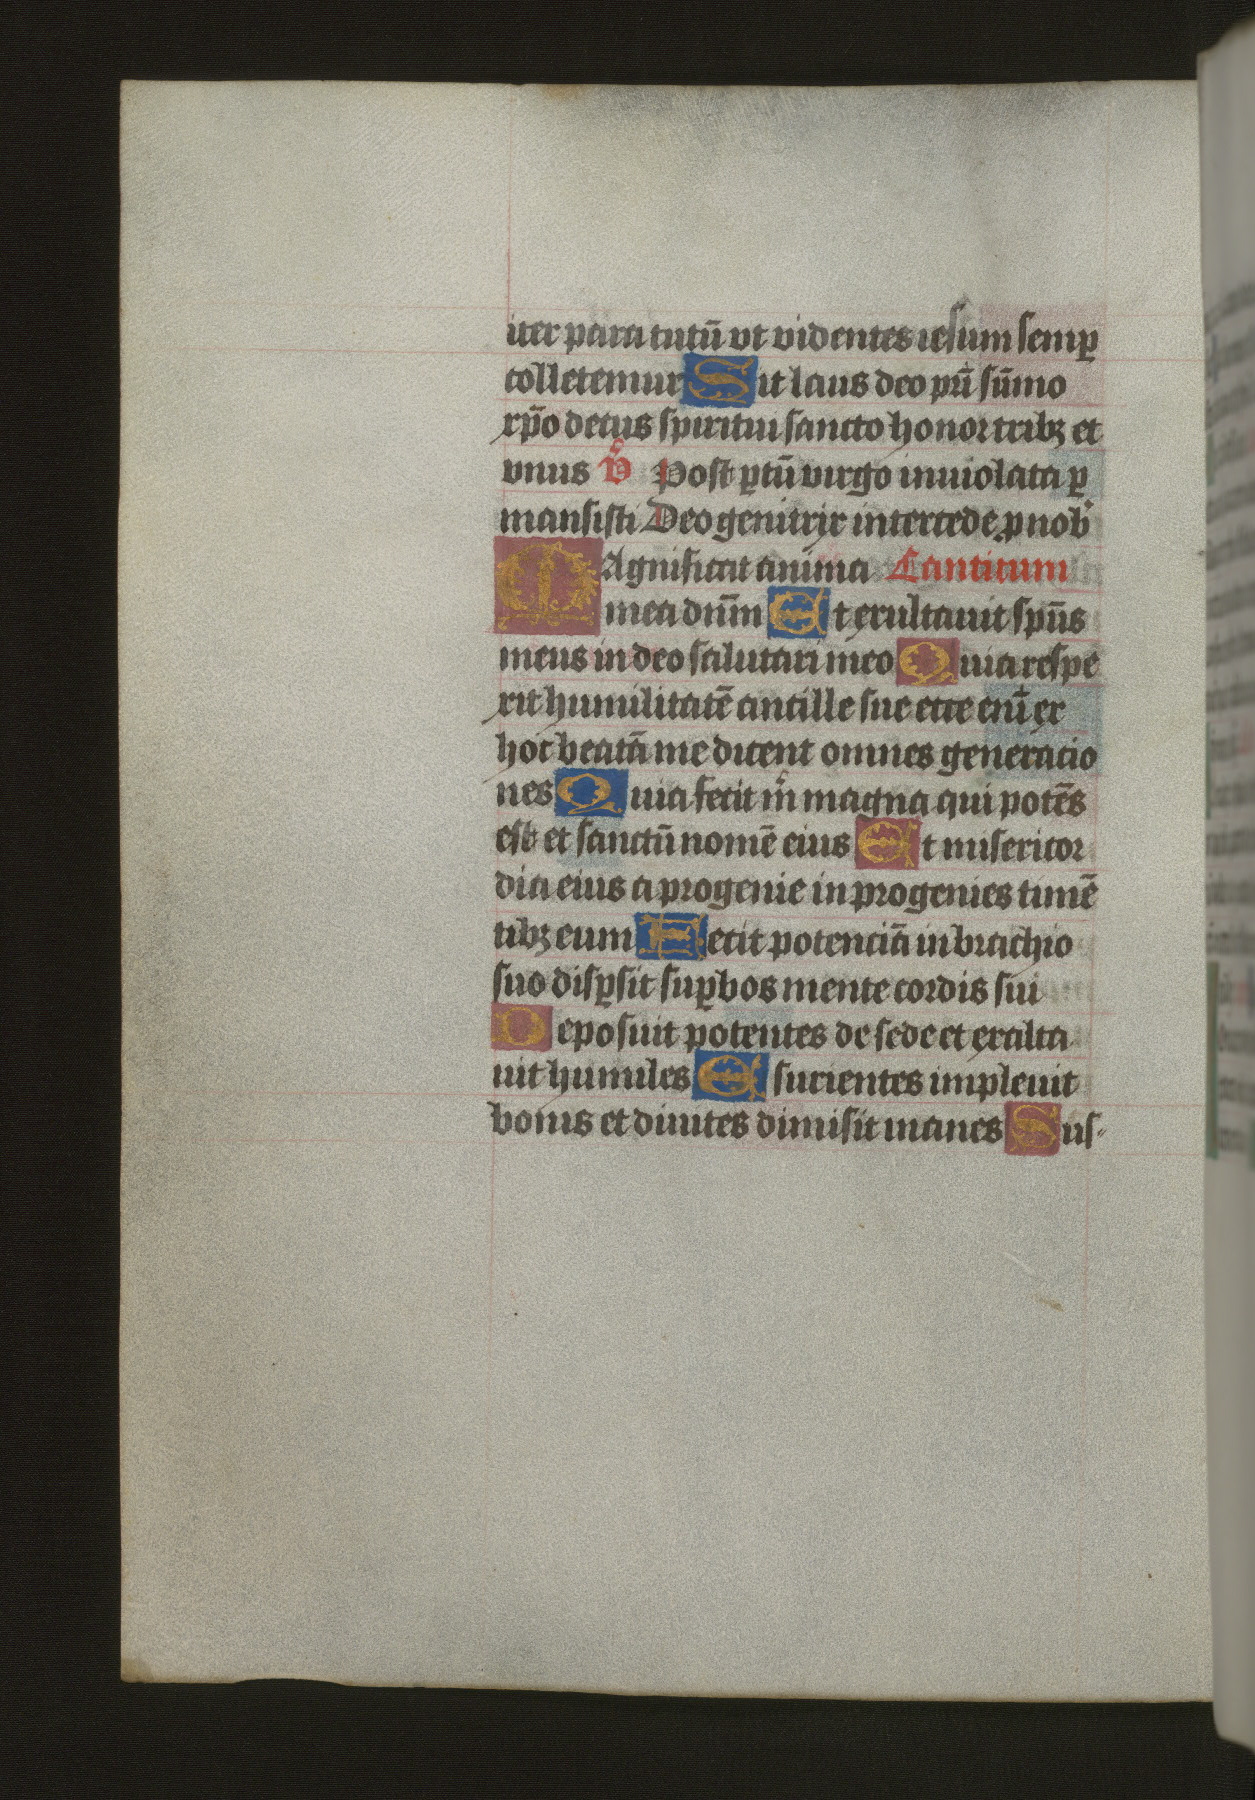 iter para tutū vt videntes iesum semꝑ
colletemur Sit laus deo pr̄i sūmo
xp̄o decus spiritui sancto honor tribꝫ et
vnus V̊ Post ꝑtū virgo inuiolata ꝑ
mansisti Dei genitrix intercede ꝓ nob̄
MAgnificat anima Canticum
mea dn̄m Et exultauit sp̄us
meus in deo salutari meo Quia respe
xit humilitatē ancille sue ecce eni̅ ex
hoc beatā me dicent omnes generatio
nes Quia fecit m̅ magna qui potēs
est et sanctū nomē eius Et misericor
dia eius a progenie in progenies timē
tibꝫ eum Fecit potenciā in brachio
suo disꝑsit suꝑbos mente cordis sui
Deposuit potentes de sede et exalta
uit humiles Esurientes impleuit
bonis et diuites dimisit inanes Sus-